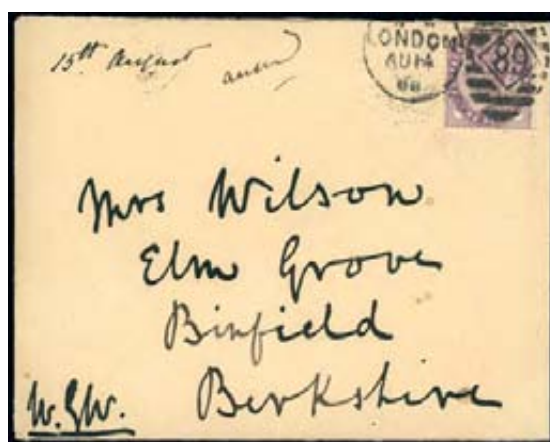 15th August
LONDON
AU 14
88
89
Mrs Wilson
Elm Grove
Binfield
Berkshire
W.G.W.